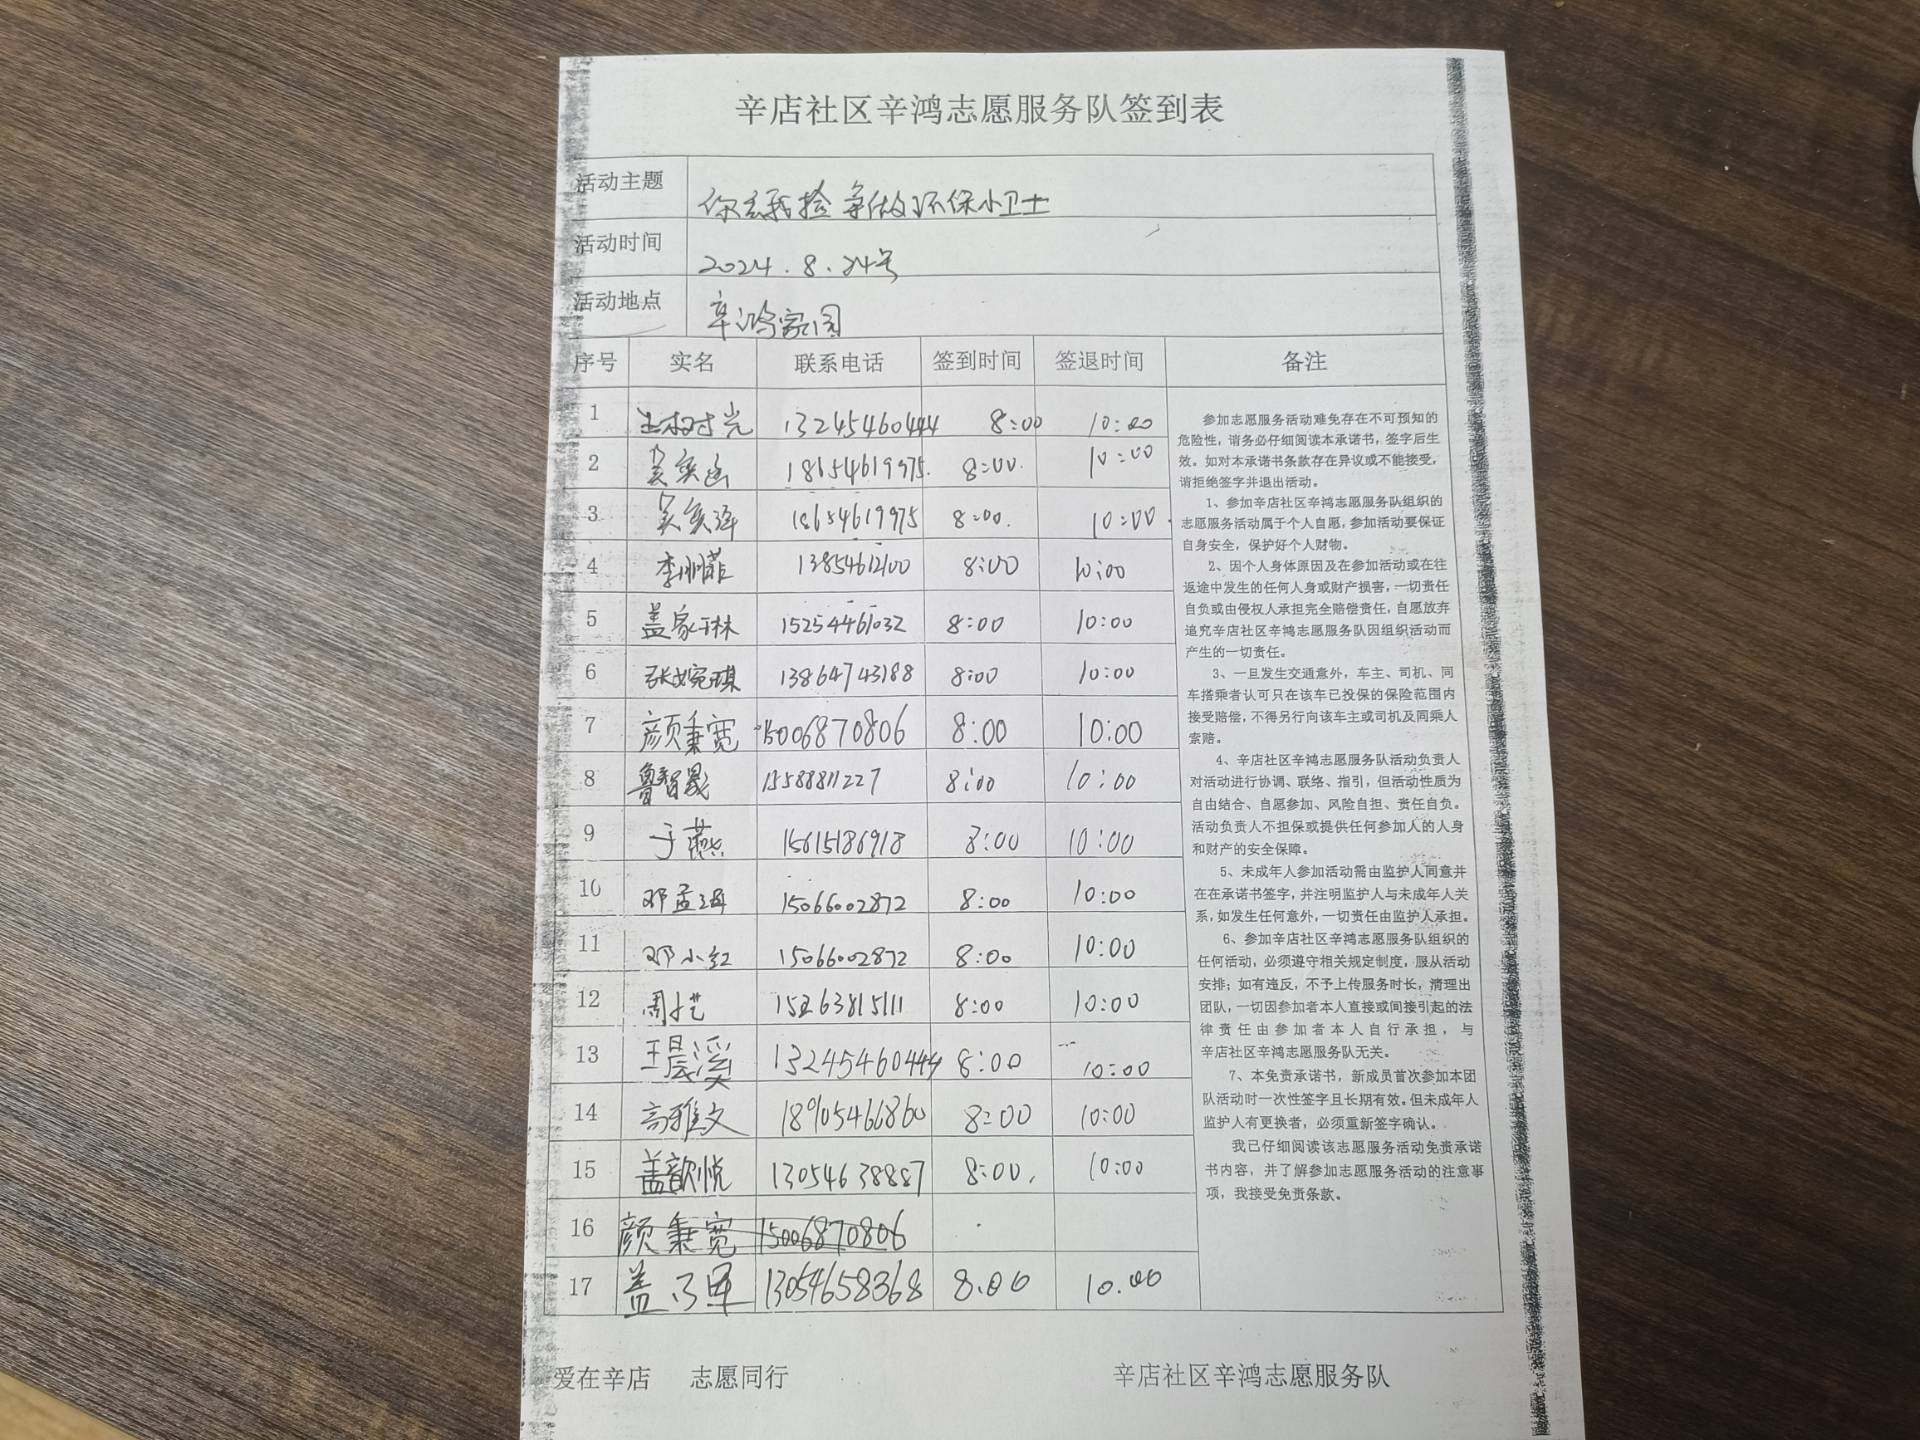 辛店社区辛鸿志愿服务队签到表
活动主题 你丢我捡 争做环保小卫士
活动时间 2024.8.24号
活动地点 辛鸿家园
序号 实名 联系电话 签到时间 签退时间 备注
1 13245460444 8:00 10:00
2 18654619975 8:00 10:00
3 18654619975 8:00 10:00
4 13854612100 8:00 10:00
5 盖家琳 15254461032 8:00 10:00
6 张婉琪 13864743188 8:00 10:00
7 颜秉宽 15006870806 8:00 10:00
8 鲁智晟 15588811227 8:00 10:00
9 于燕 15615186918 8:00 10:00
10 邓孟 15066002872 8:00 10:00
11 邓小红 15066002872 8:00 10:00
12 周艺 15263815111 8:00 10:00
13 王晨溪 13245460444 8:00 10:00
14 高雅文 18905466860 8:00 10:00
15 盖歆悦 13054638887 8:00 10:00
16 颜秉宽 15006870806
17 盖 13054658368 8.00 10.00
参加志愿服务活动难免存在不可预知的
危险性，请务必仔细阅读本承诺书，签字后生
效。如对本承诺书条款存在异议或不能接受，
请拒绝签字并退出活动。
1、参加辛店社区辛鸿志愿服务队组织的
志愿服务活动属于个人自愿，参加活动要保证
自身安全，保护好个人财物。
2、因个人身体原因及在参加活动或在往
返途中发生的任何人身或财产损害，一切责任
自负或由侵权人承担完全赔偿责任，自愿放弃
追究辛店社区辛鸿志愿服务队因组织活动而
产生的一切责任。
3、一旦发生交通意外，车主、司机、同
车搭乘者认可只在该车已投保的保险范围内
接受赔偿，不得另行向该车主或司机及同乘人
索赔。
4、辛店社区辛鸿志愿服务队活动负责人
对活动进行协调、联络、指引，但活动性质为
自由结合、自愿参加、风险自担、责任自负。
活动负责人不担保或提供任何参加人的人身
和财产的安全保障。
5、未成年人参加活动需由监护人同意并
在在承诺书签字，并注明监护人与未成年人关
系，如发生任何意外，一切责任由监护人承担。
6、参加辛店社区辛鸿志愿服务队组织的
任何活动，必须遵守相关规定制度，服从活动
安排；如有违反，不予上传服务时长，清理出
团队，一切因参加者本人直接或间接引起的法
律责任由参加者本人自行承担，与
辛店社区辛鸿志愿服务队无关。
7、本免责承诺书，新成员首次参加本团
队活动时一次性签字且长期有效。但未成年人
监护人有更换者，必须重新签字确认。
我已仔细阅读该志愿服务活动免责承诺
书内容，并了解参加志愿服务活动的注意事
项，我接受免责条款。
爱在辛店 志愿同行 辛店社区辛鸿志愿服务队